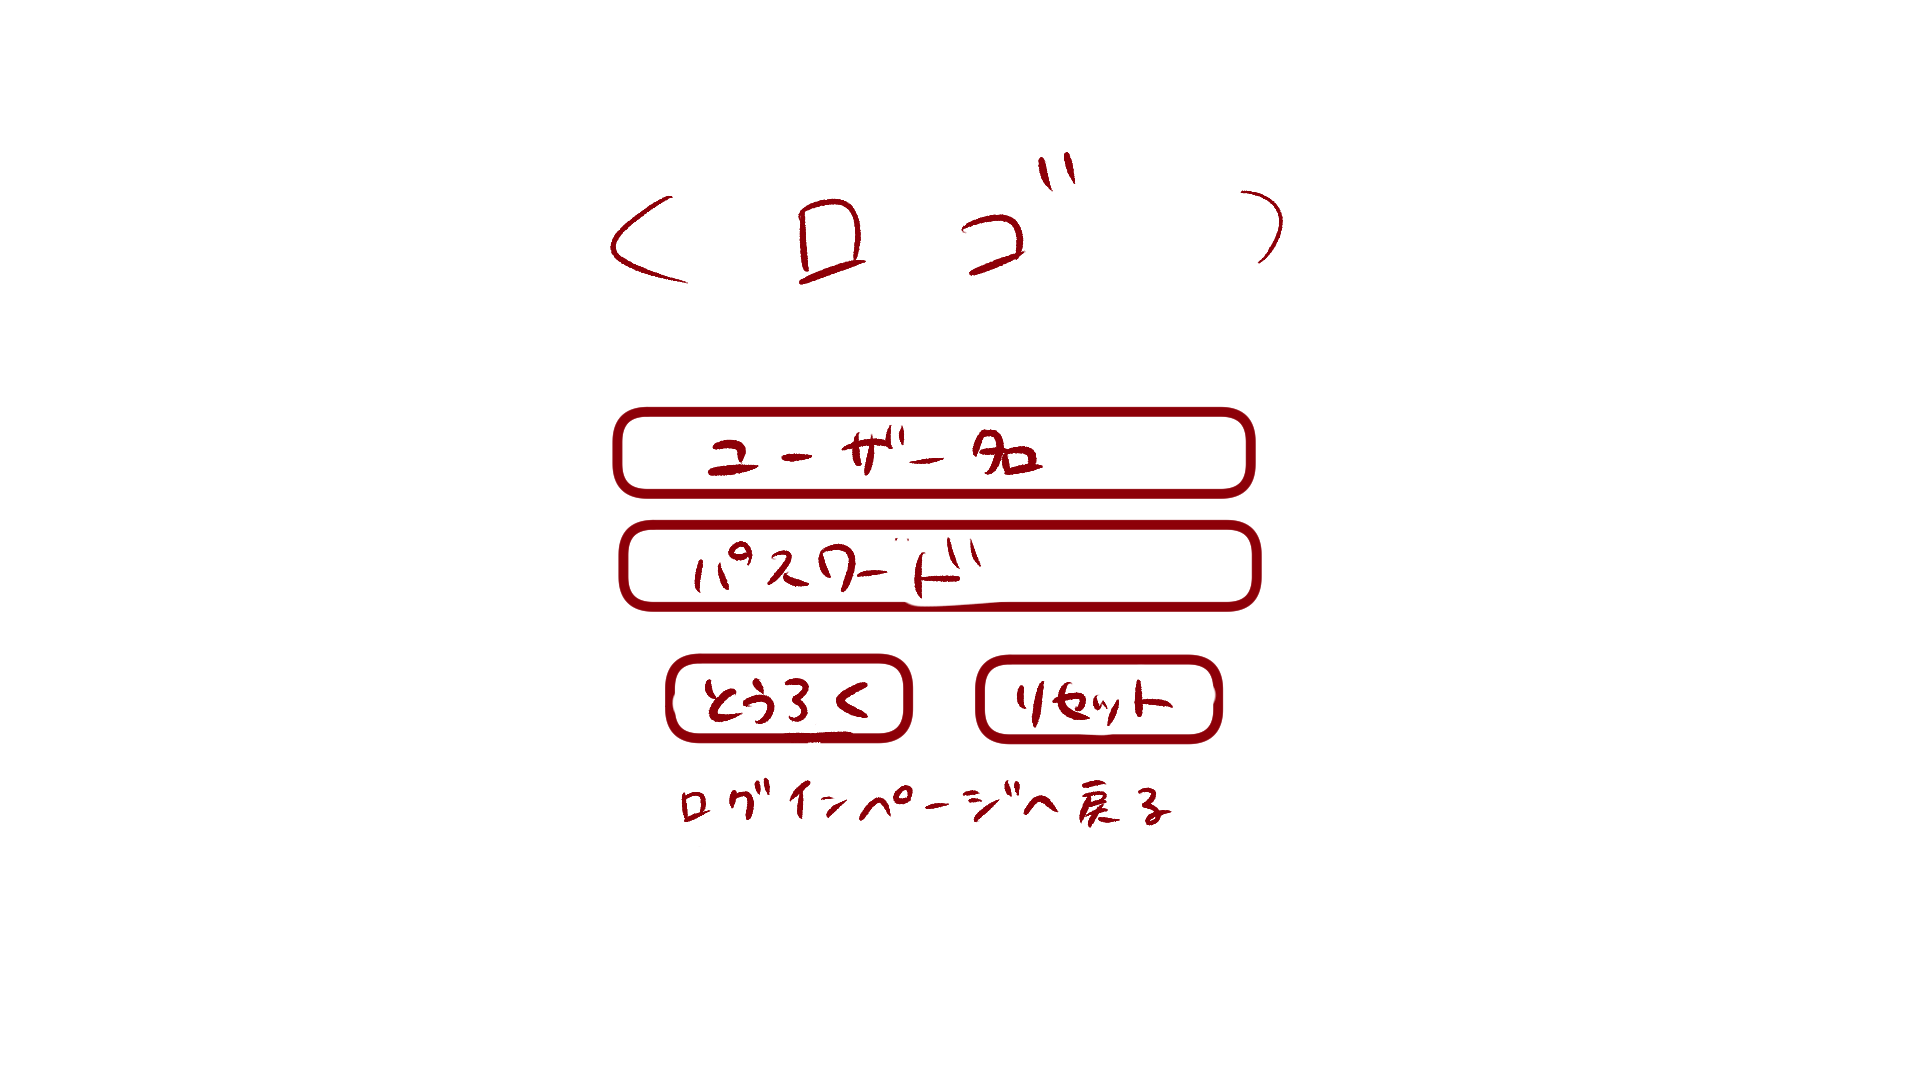 < ロゴ )
ユーザー名
パスワード
とうろく リセット
ログインページへ戻る